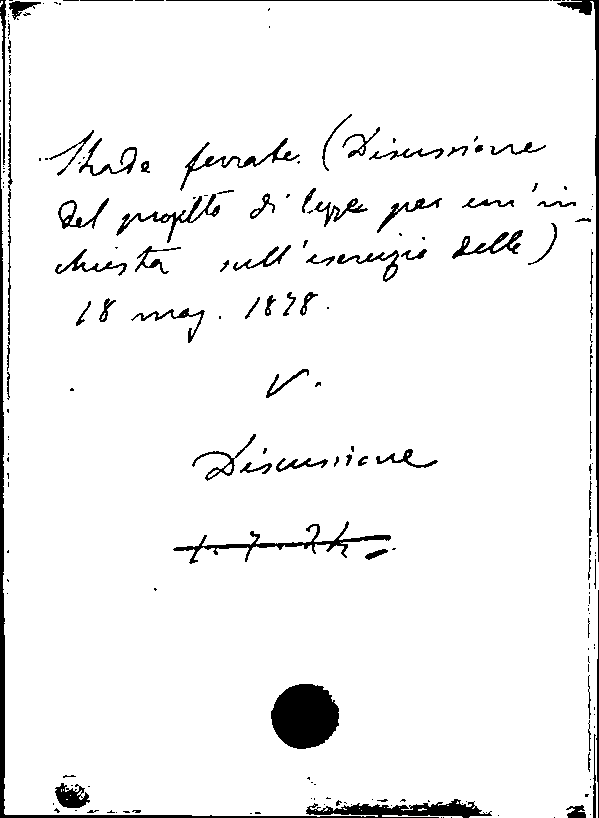 Strade ferrate. (Discussione
del progetto di legge per un'in-
chiesta sull'esercizio delle)
18 mag. 1878.
V.
Discussione
1.7.24